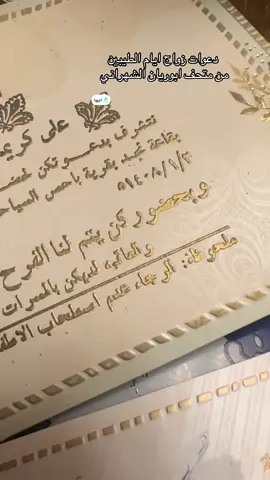 دعوات زواج ايام الطيبين
من متحف ابوريان الشهراني
على كريم
نتشرف بدعوتكن لحضـ
بقاعة نجيد بقرية باحص السياحـ
١٤٠٨/١/٣هـ
وبحضوركن يتم لنا الفرح
والعاقبه لديكن بالمسرات
ملحوظة: الرجاء عدم اصطحاب الاطفـ